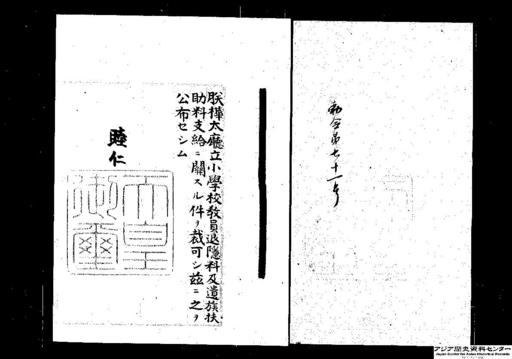 勅令第七十一号
朕樺太廳立小學校教員退隱料及遺族扶
助料支給ニ關スル件ヲ裁可シ茲ニ之ヲ
公布セシム
睦仁
天皇
御璽
アジア歴史資料センター
Japan Center for Asian Historical Records